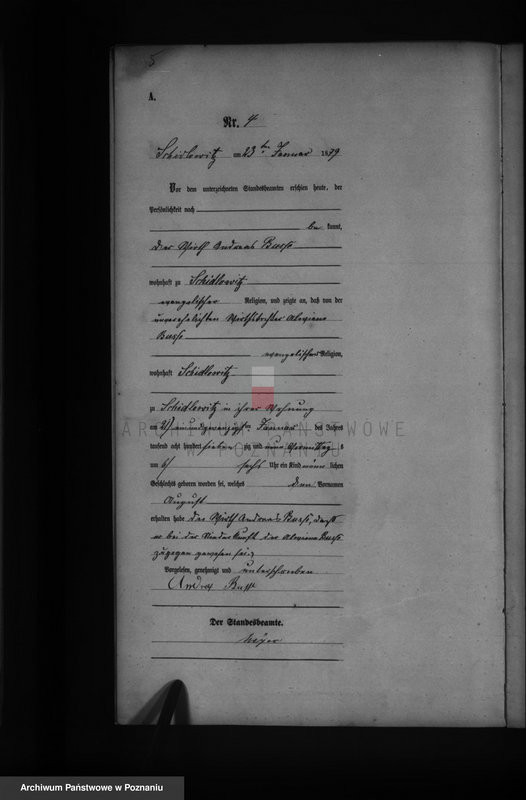 5
A.
Nr. 4
Schidlowitz am 23 ten Januar 1879
Vor dem unterzeichneten Standesbeamten erschien heute, der
Persönlichkeit nach
be kannt,
der Wirth Andreas Busse
wohnhaft zu Schidlowitz
evangelischer Religion, und zeigte an, daß von der
unverehelichten Wirthstochter Alwiene
Busse
evangelischer Religion,
wohnhaft Schidlowitz
zu Schidlowitz in ihrer Wohnung
am 21 einundzwanzigsten Januar des Jahres
tausend acht hundert sieben zig und neun Vormittag s
um 6 sechs Uhr ein Kind männ lichen
Geschlechts geboren worden sei, welches den Vornamen
August
erhalten habe der Wirth Andreas Busse, daß
er bei der Niederkunft der Alwiene Busse
zugegen gewesen sei.
Vorgelesen, genehmigt und unterschrieben
Andreas Busse
Der Standesbeamte.
ARCHIWUM PAŃSTWOWE
W POZNANIU
Archiwum Państwowe w Poznaniu